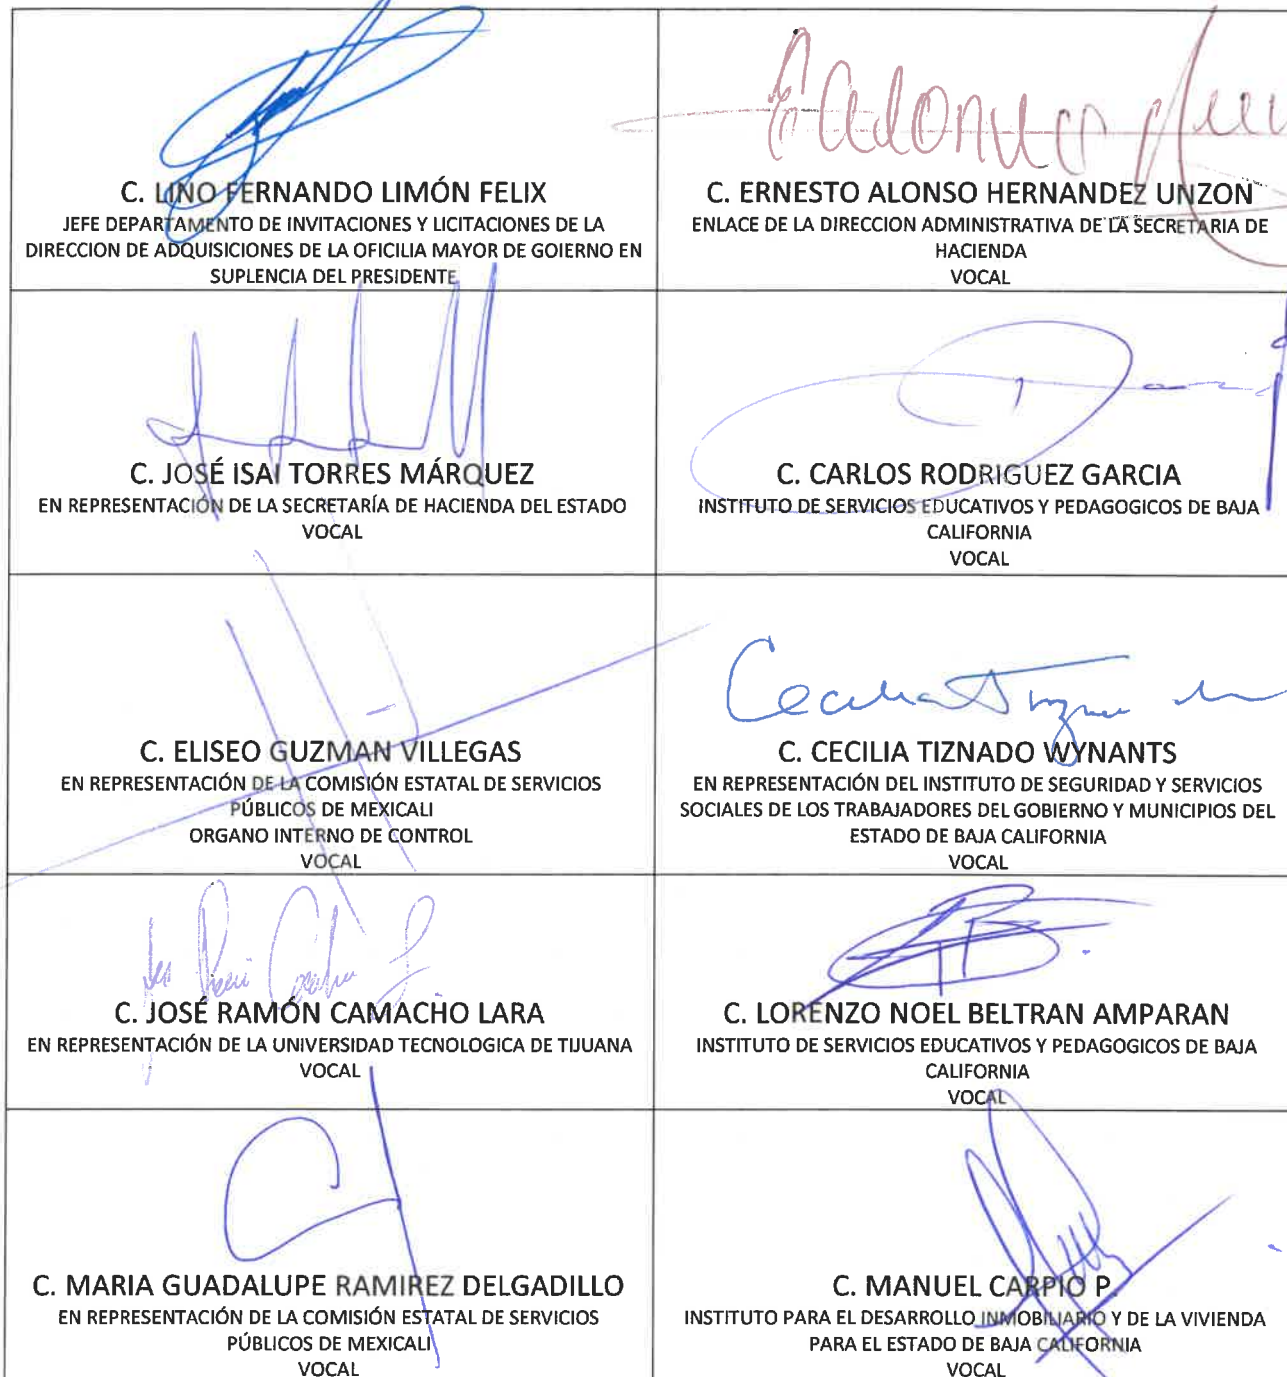 C. LINO FERNANDO LIMÓN FELIX
JEFE DEPARTAMENTO DE INVITACIONES Y LICITACIONES DE LA
DIRECCION DE ADQUISICIONES DE LA OFICILIA MAYOR DE GOIERNO EN
SUPLENCIA DEL PRESIDENTE
C. ERNESTO ALONSO HERNANDEZ UNZON
ENLACE DE LA DIRECCION ADMINISTRATIVA DE LA SECRETARIA DE
HACIENDA
VOCAL
C. JOSÉ ISAI TORRES MÁRQUEZ
EN REPRESENTACIÓN DE LA SECRETARÍA DE HACIENDA DEL ESTADO
VOCAL
C. CARLOS RODRIGUEZ GARCIA
INSTITUTO DE SERVICIOS EDUCATIVOS Y PEDAGOGICOS DE BAJA
CALIFORNIA
VOCAL
C. ELISEO GUZMAN VILLEGAS
EN REPRESENTACIÓN DE LA COMISIÓN ESTATAL DE SERVICIOS
PÚBLICOS DE MEXICALI
ORGANO INTERNO DE CONTROL
VOCAL
Cecilia
C. CECILIA TIZNADO WYNANTS
EN REPRESENTACIÓN DEL INSTITUTO DE SEGURIDAD Y SERVICIOS
SOCIALES DE LOS TRABAJADORES DEL GOBIERNO Y MUNICIPIOS DEL
ESTADO DE BAJA CALIFORNIA
VOCAL
C. JOSÉ RAMÓN CAMACHO LARA
EN REPRESENTACIÓN DE LA UNIVERSIDAD TECNOLOGICA DE TIJUANA
VOCAL
C. LORENZO NOEL BELTRAN AMPARAN
INSTITUTO DE SERVICIOS EDUCATIVOS Y PEDAGOGICOS DE BAJA
CALIFORNIA
VOCAL
C. MARIA GUADALUPE RAMIREZ DELGADILLO
EN REPRESENTACIÓN DE LA COMISIÓN ESTATAL DE SERVICIOS
PÚBLICOS DE MEXICALI
VOCAL
C. MANUEL CARPIO P.
INSTITUTO PARA EL DESARROLLO INMOBILIARIO Y DE LA VIVIENDA
PARA EL ESTADO DE BAJA CALIFORNIA
VOCAL